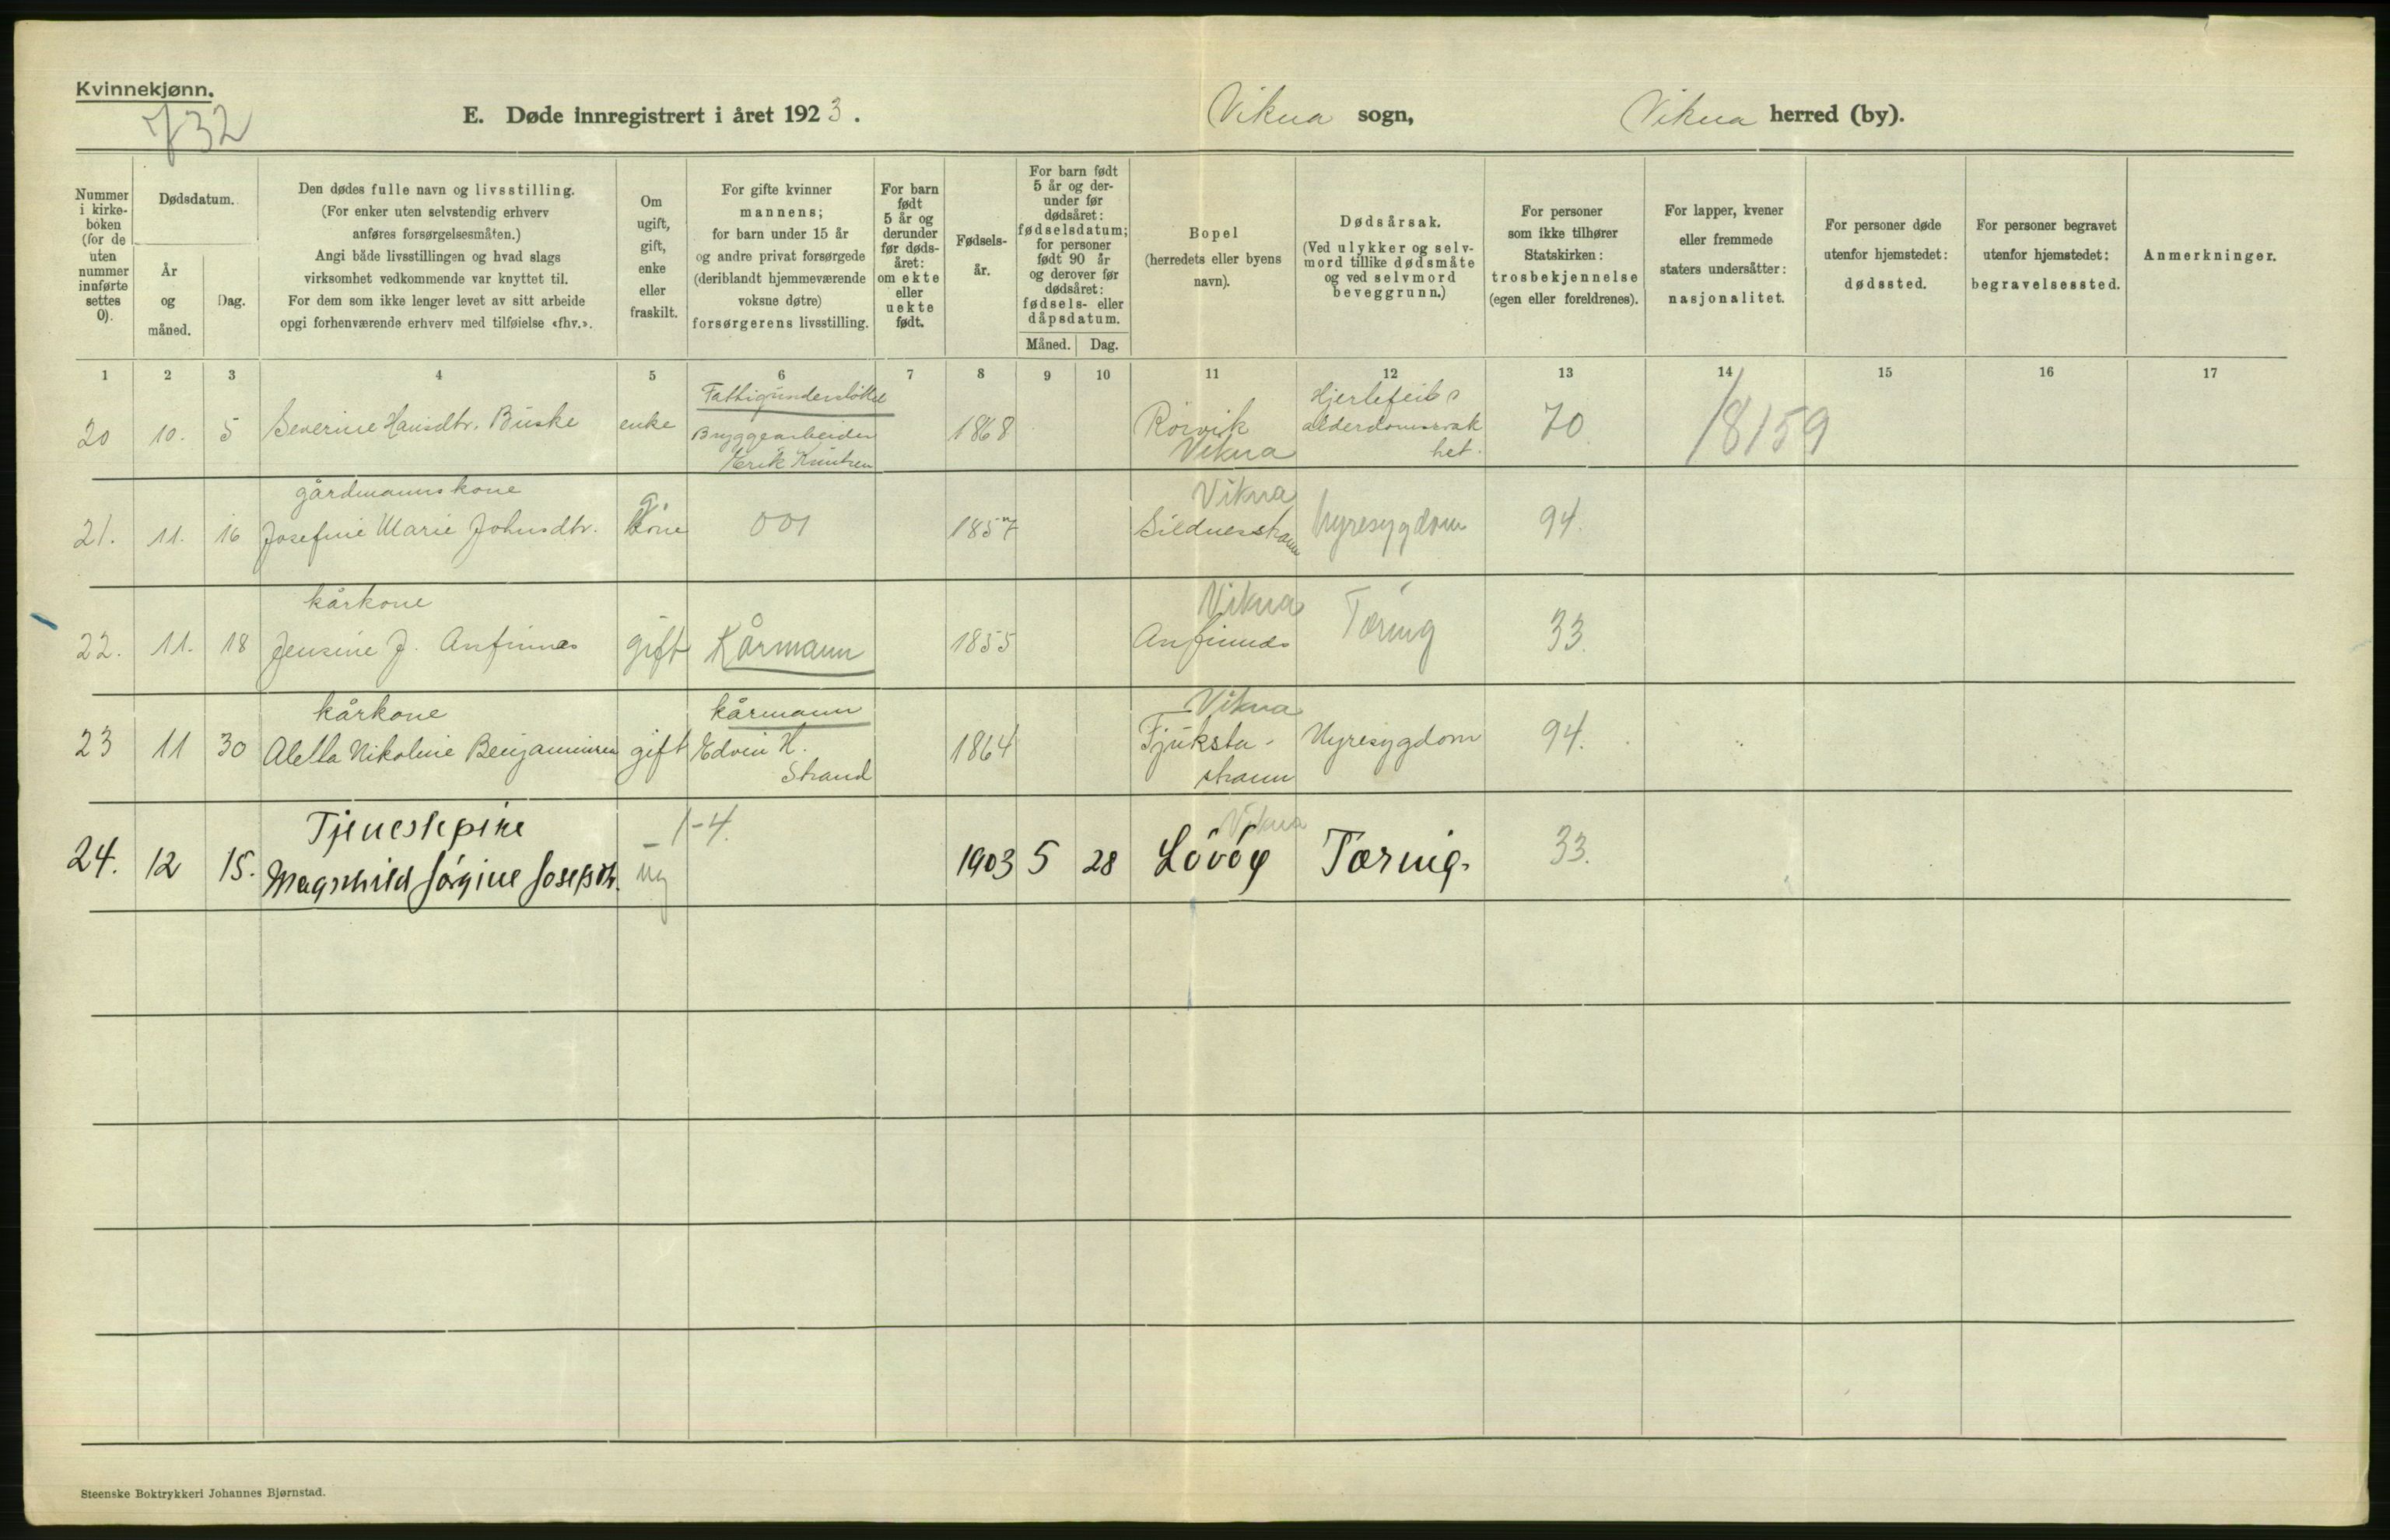 Kvinnekjønn.
732
E. Døde innregistrert i året 1923.
Vikna sogn,
Vikna herred (by).
Nummer i kirkeboken (for de uten nummer innførte settes 0).
Dødsdatum.
År og måned.
Dag.
Den dødes fulle navn og livsstilling.
(For enker uten selvstendig erhverv
anføres forsørgelsesmåten.)
Angi både livsstillingen og hvad slags
virksomhet vedkommende var knyttet til.
For dem som ikke lenger levet av sitt arbeide
opgi forhenværende erhverv med tilføielse «fhv.».
Om
ugift,
gift,
enke
eller
fraskilt.
For gifte kvinner
mannens;
for barn under 15 år
og andre privat forsørgede
(deriblandt hjemmeværende
voksne døtre)
forsørgerens livsstilling.
For barn
født
5 år og
derunder
før døds-
året:
om ekte
eller
uekte
født.
Fødsels-
år.
For barn født
5 år og der-
under før
dødsåret:
fødselsdatum;
for personer
født 90 år
og derover før
dødsåret:
fødsels- eller
dåpsdatum.
Måned. Dag.
Bopel
(herredets eller byens
navn).
Dødsårsak.
(Ved ulykker og selv-
mord tillike dødsmåte
og ved selvmord
beveggrunn.)
For personer
som ikke tilhører
Statskirken:
trosbekjennelse
(egen eller foreldrenes).
For lapper, kvener
eller fremmede
staters undersåtter:
nasjonalitet.
For personer døde
utenfor hjemstedet:
dødssted.
For personer begravet
utenfor hjemstedet:
begravelsessted.
Anmerkninger.
1 2 3 4 5 6 7 8 9 10 11 12 13 14 15 16 17
Fattigunderstøttet
Hjertefeil
20 10. 5 Severine Hansdtr. Buske enke Bryggearbeider 1868 Rörvik alderdomssvak 70 18159
Erik Knutsen Vikna het.
gårdmannskone g. Vikna
21. 11. 16 Josefine Marie Johnsdtr. kone 001 1857 Sildnesstrann Nyresygdom 94.
kårkone Vikna
22. 11. 18 Jensine J. Anfinnes gift Kårmann 1855 Anfinnes Tæring 33.
kårkone kårmann Vikna
23 11 30 Aletta Nikoline Benjaminsen gift Edvin H. 1864 Fjuksta- Nyresygdom 94.
Strand strann
Tjenestepike 1-4. Vikna
24. 12 15. Magnhild Jörgine Josepdtr. ug 1903 5 28 Lövöy Tæring. 33.
Steenske Boktrykkeri Johannes Bjørnstad.